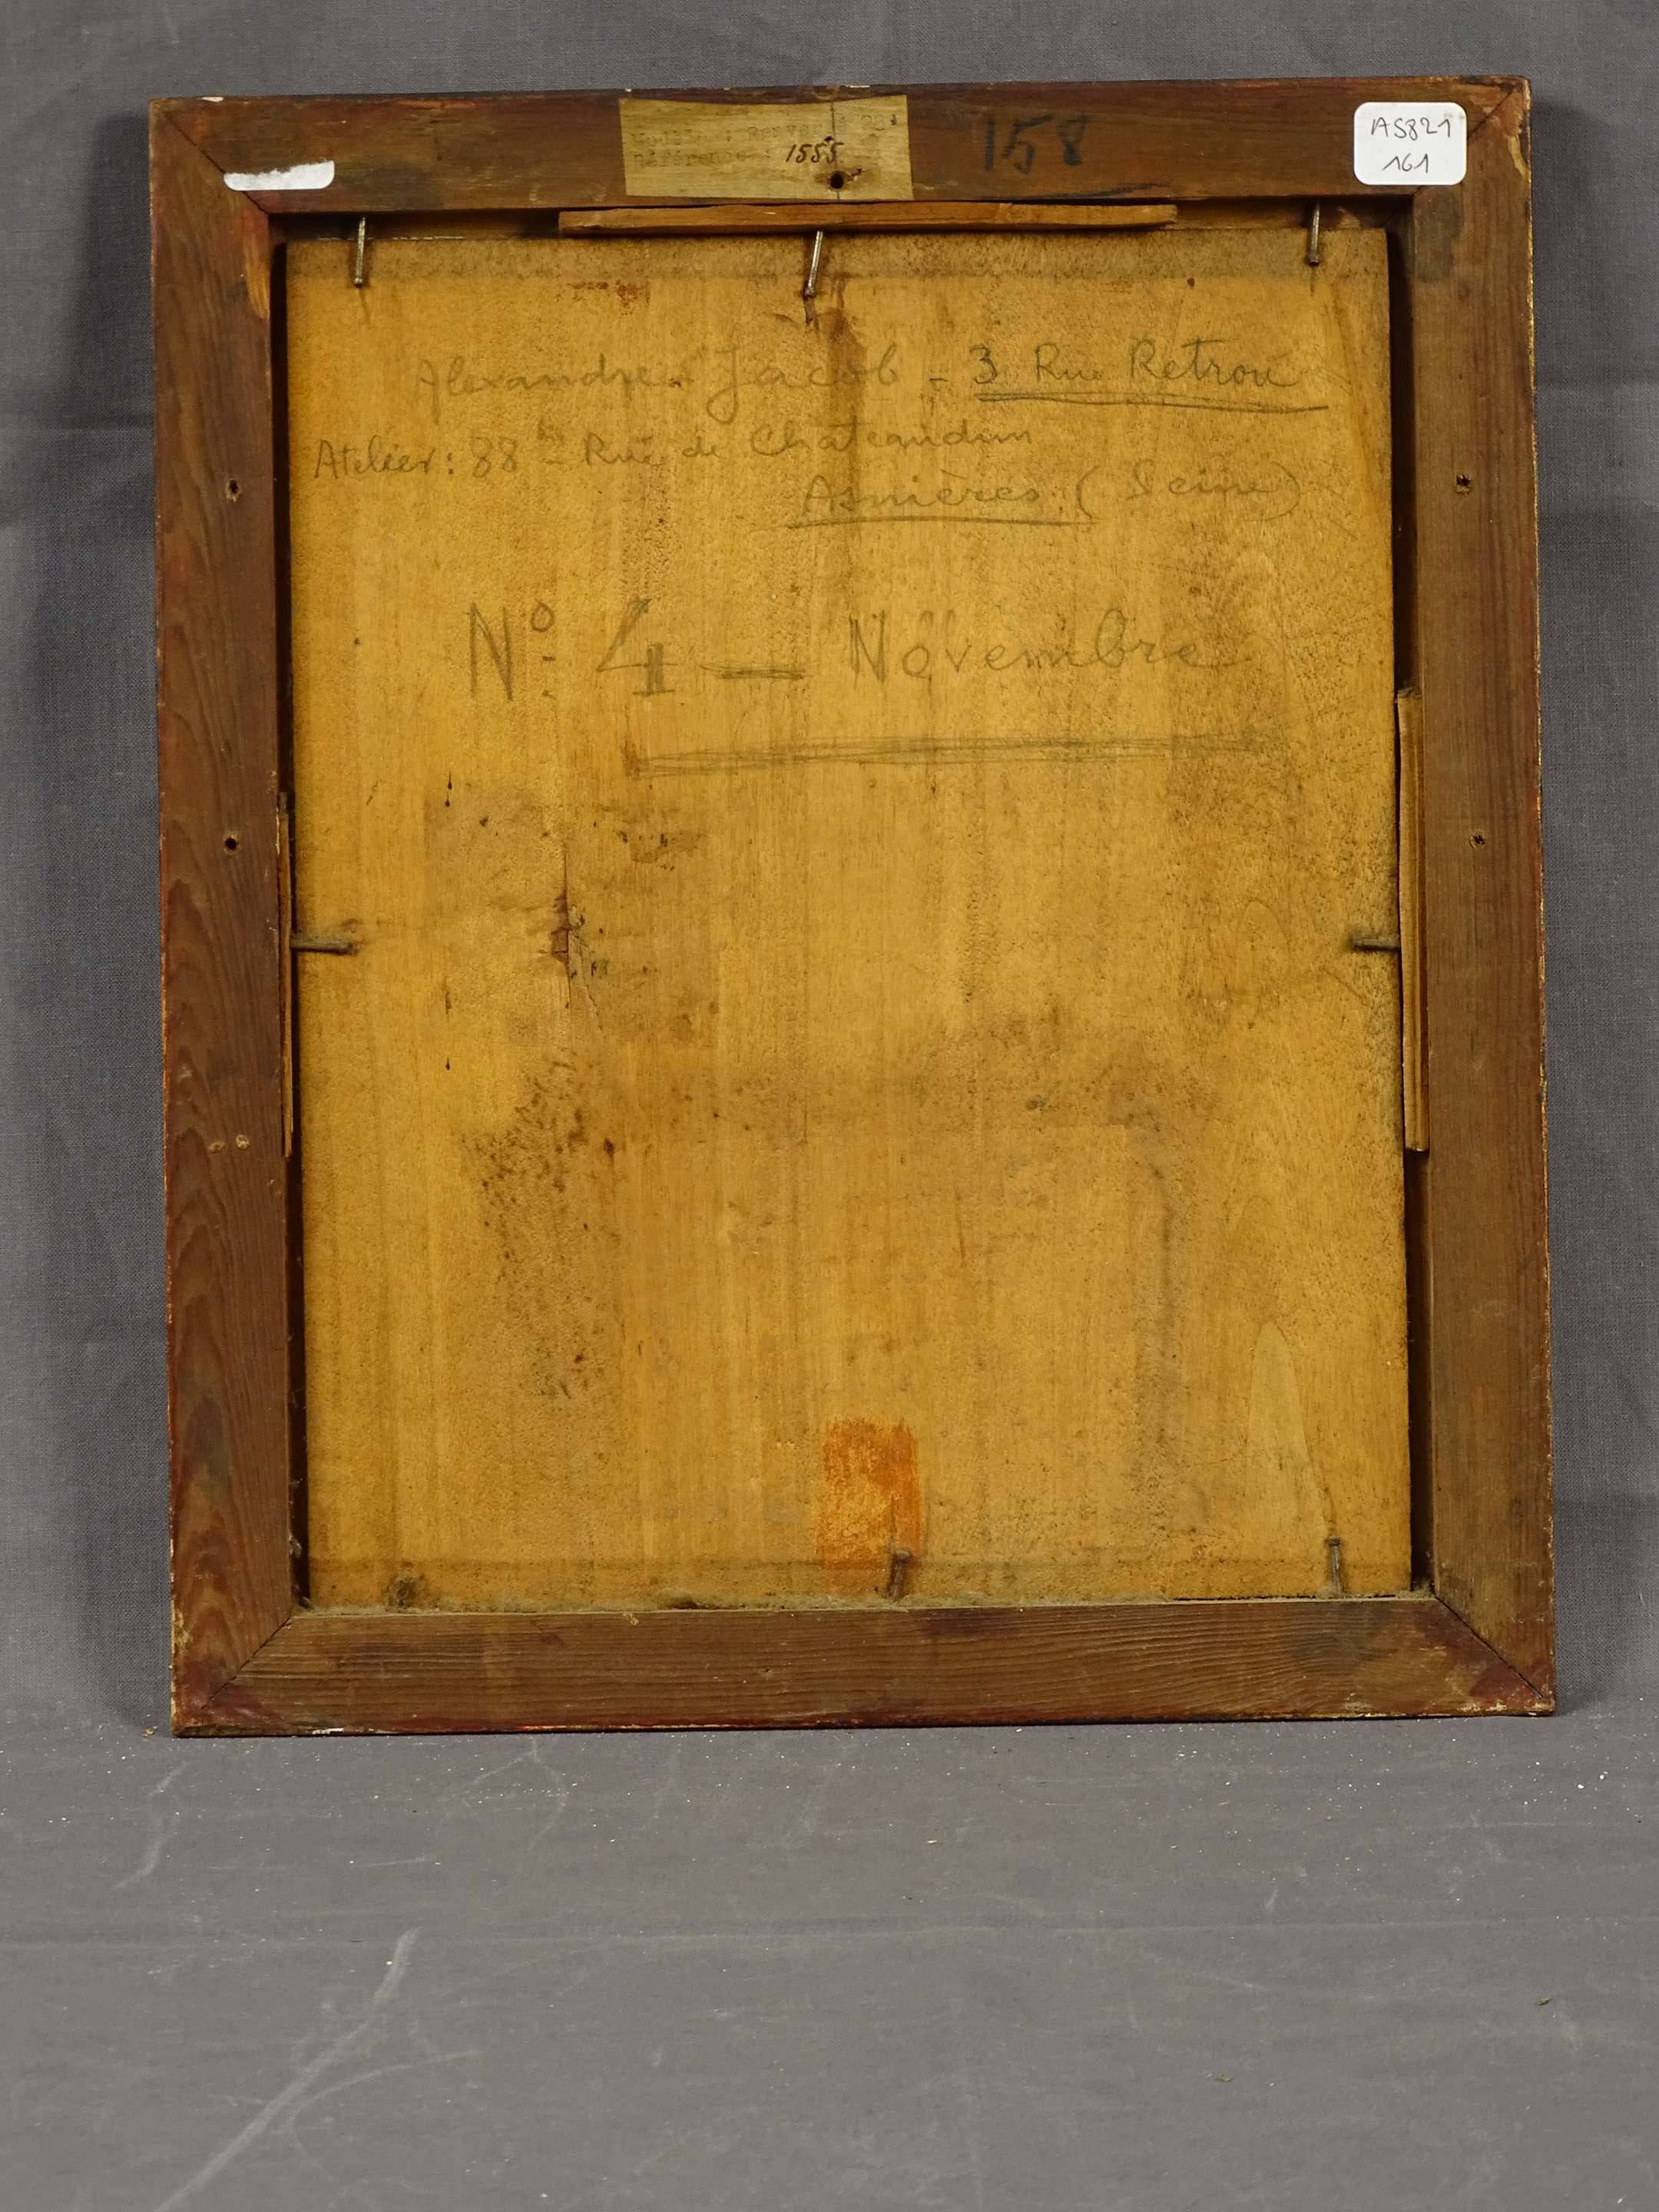 Référence : 1555
158
AS821
161
Alexandre Jacob - 3 Rue Retrou
Atelier : 88 bis - Rue de Chateaudun
Asnières (Seine)
Nº 4 — Novembre